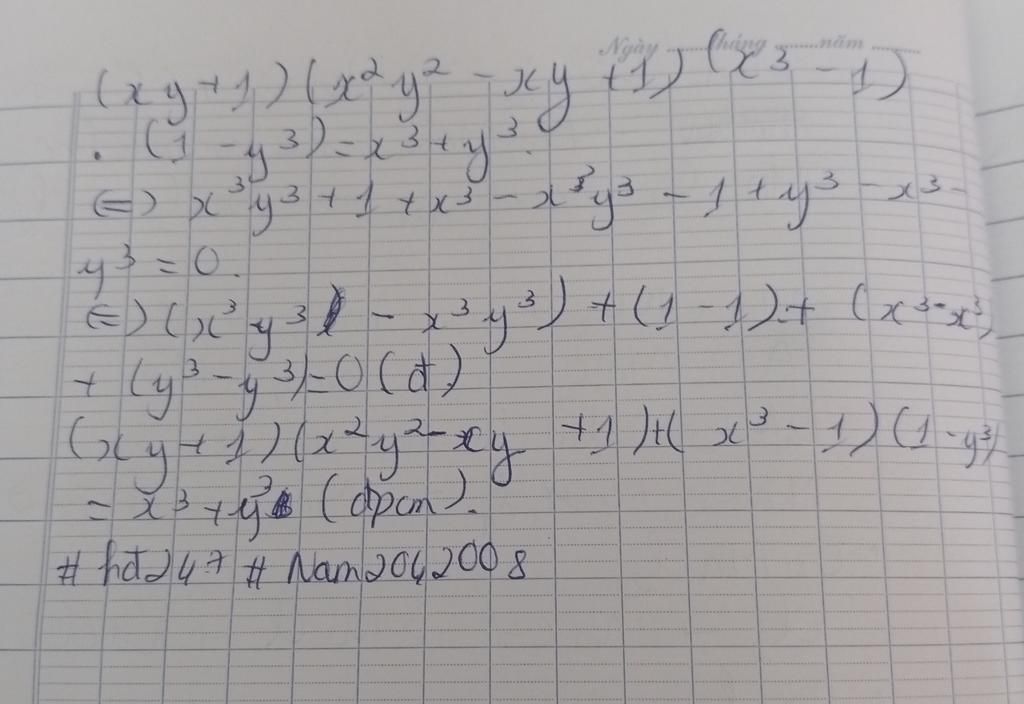 Ngày ........ tháng ........ năm ........
(xy+1)(x²y² - xy +1) (x³ - 1)
. (1 - y³) = x³ + y³.
⇔) x³y³ + 1 + x³ - x³y³ - 1 + y³ - x³ -
y³ = 0.
⇔) (x³y³ - x³y³) + (1 - 1) + (x³ - x³)
+ (y³ - y³) = 0 (đ)
(xy + 1)(x²y² - xy +1) + (x³ - 1)(1 - y³)
= x³ + y³ (đpcm).
# hđ247 # Nam2042008